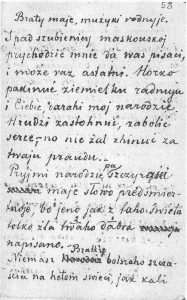 58
Braty maje, mużyki rodnyje.
Z pad szubienicy maskouskoj
prychodzić mnie da was pisaci,
i może raz astatni. Horko
pakinuć ziemielku radnuju
i Ciebie darahi moj narodzie.
Hrudzi zastohnuć, zabolić
serce, no nie żal zhinuć za
twaju praudu.
Pryjmi narodzie pa szczyrasti
maje słowo predśmier-
tnoje, bo jeno jak z taho świeta
tolko dla twaho dabra
napisano.
Niemasz Bratti bolszaho szcza-
ścia na hetom świeci, jak kali